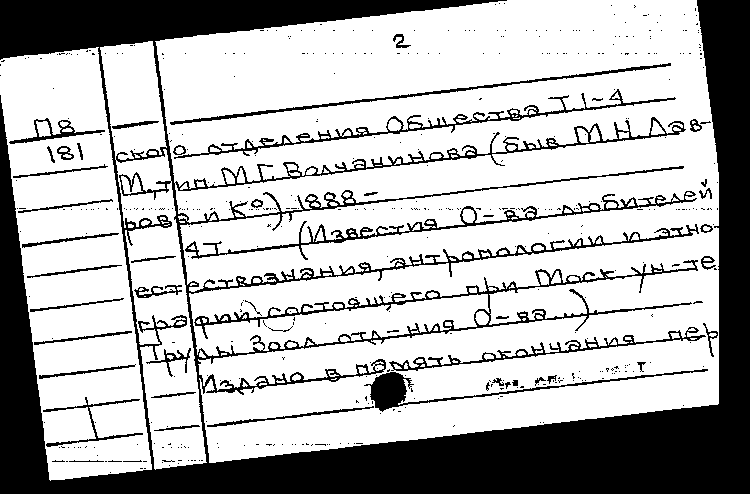 2
П8
181
ского отделения Общества. Т. 1-4
М., тип. М.Г. Волчанинова (быв. М.Н. Лав-
рова и Ко), 1888-
4 т. (Известия О-ва любителей
естествознания, антропологии и этно-
графии, состоящего при Моск. ун-те.
Труды Зоол. отд-ния О-ва...).
Издано в память окончания пер